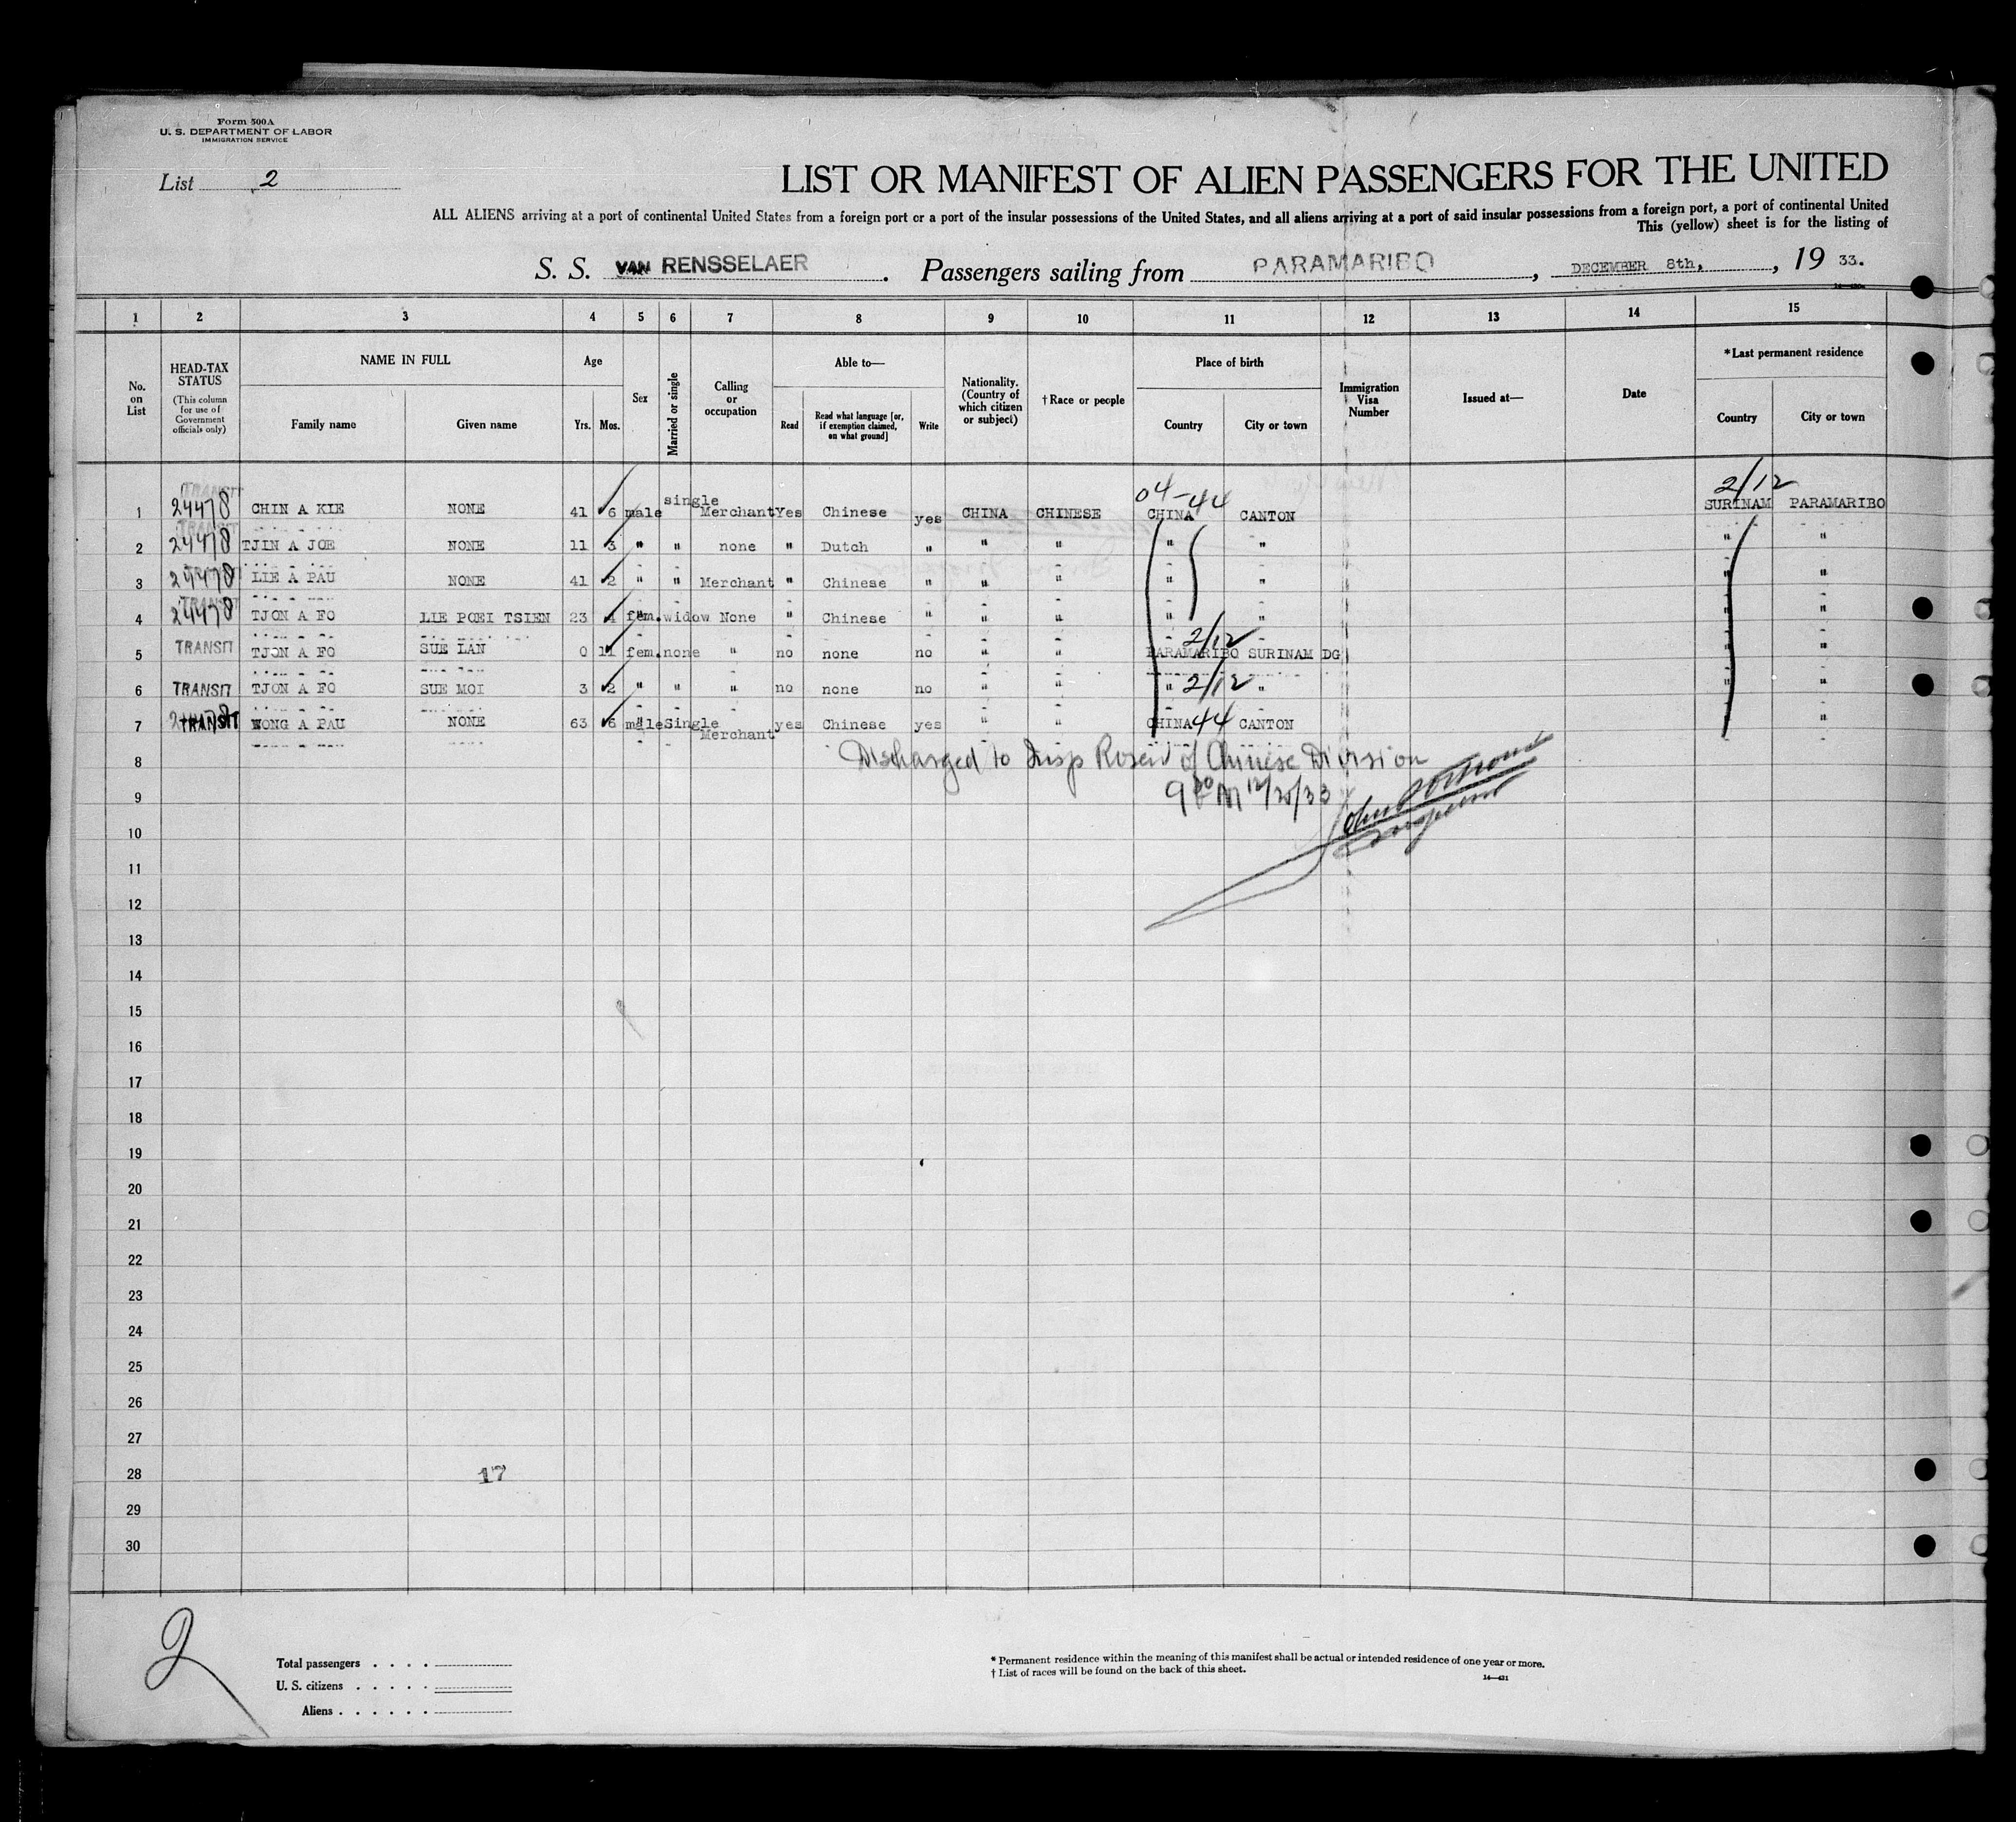 Form 500A
U. S. DEPARTMENT OF LABOR
IMMIGRATION SERVICE
List 2
LIST OR MANIFEST OF ALIEN PASSENGERS FOR THE UNITED
ALL ALIENS arriving at a port of continental United States from a foreign port or a port of the insular possessions of the United States, and all aliens arriving at a port of said insular possessions from a foreign port, a port of continental United
This (yellow) sheet is for the listing of
S. S. VAN RENSSELAER. Passengers sailing from PARAMARIBO, DECEMBER 8th, , 19 33.
1 2 3 4 5 6 7 8 9 10 11 12 13 14 15
No. on List
HEAD-TAX STATUS (This column for use of Government officials only)
NAME IN FULL Family name Given name
Age Yrs. Mos.
Sex
Married or single
Calling or occupation
Able to— Read Read what language [or, if exemption claimed, on what ground] Write
Nationality. (Country of which citizen or subject)
† Race or people
Place of birth Country City or town
Immigration Visa Number
Issued at—
Date
* Last permanent residence Country City or town
TRANSIT 04-44 2/12
1 24478 CHIN A KIE NONE 41 6 male single Merchant Yes Chinese yes CHINA CHINESE CHINA CANTON SURINAM PARAMARIBO
TRANSIT
2 24478 TJIN A JOE NONE 11 3 " " none " Dutch " " " " " " "
TRANSIT
3 24478 LIE A PAU NONE 41 2 " " Merchant " Chinese " " " " " " "
TRANSIT
4 24478 TJON A FO LIE POEI TSIEN 23 4 fem. widow None " Chinese " " " " " " "
2/12
5 TRANSIT TJON A FO SUE LAN 0 11 fem. none " no none no " " PARAMARIBO SURINAM DG " "
6 TRANSIT TJON A FO SUE MOI 3 2 " " " no none no " " " 2/12 " " "
7 TRANSIT WONG A PAU NONE 63 6 male Single Merchant yes Chinese yes " " CHINA 44 CANTON " "
8 Discharged to Insp Rosen of Chinese Division
9 9 30 AM 12/20/33
10
11
12
13
14
15
16
17
18
19
20
21
22
23
24
25
26
27
28 17
29
30
2
Total passengers . . . .
U. S. citizens . . . . .
Aliens . . . . . .
* Permanent residence within the meaning of this manifest shall be actual or intended residence of one year or more.
† List of races will be found on the back of this sheet.
14—431